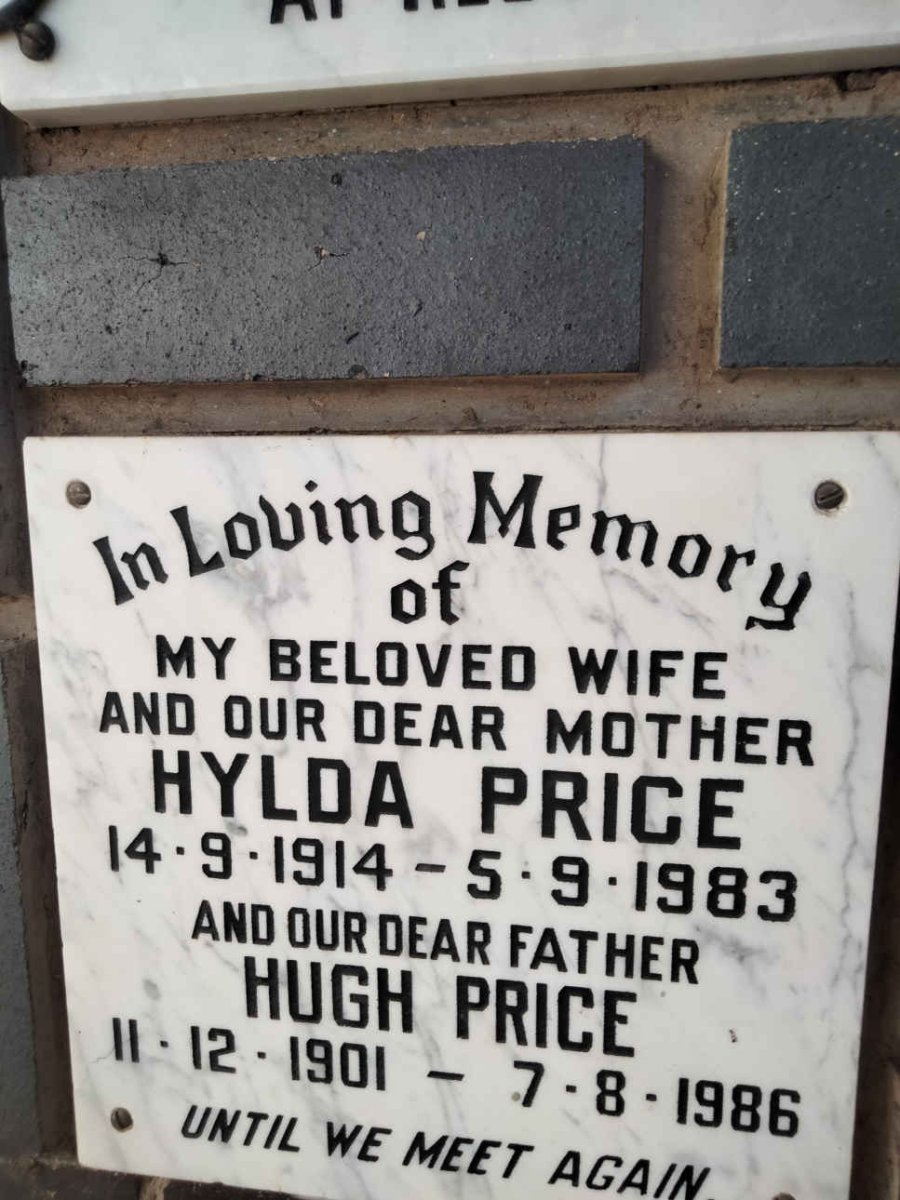 In Loving Memory
of
MY BELOVED WIFE
AND OUR DEAR MOTHER
HYLDA PRICE
14·9·1914 – 5·9·1983
AND OUR DEAR FATHER
HUGH PRICE
11·12·1901 – 7·8·1986
UNTIL WE MEET AGAIN.